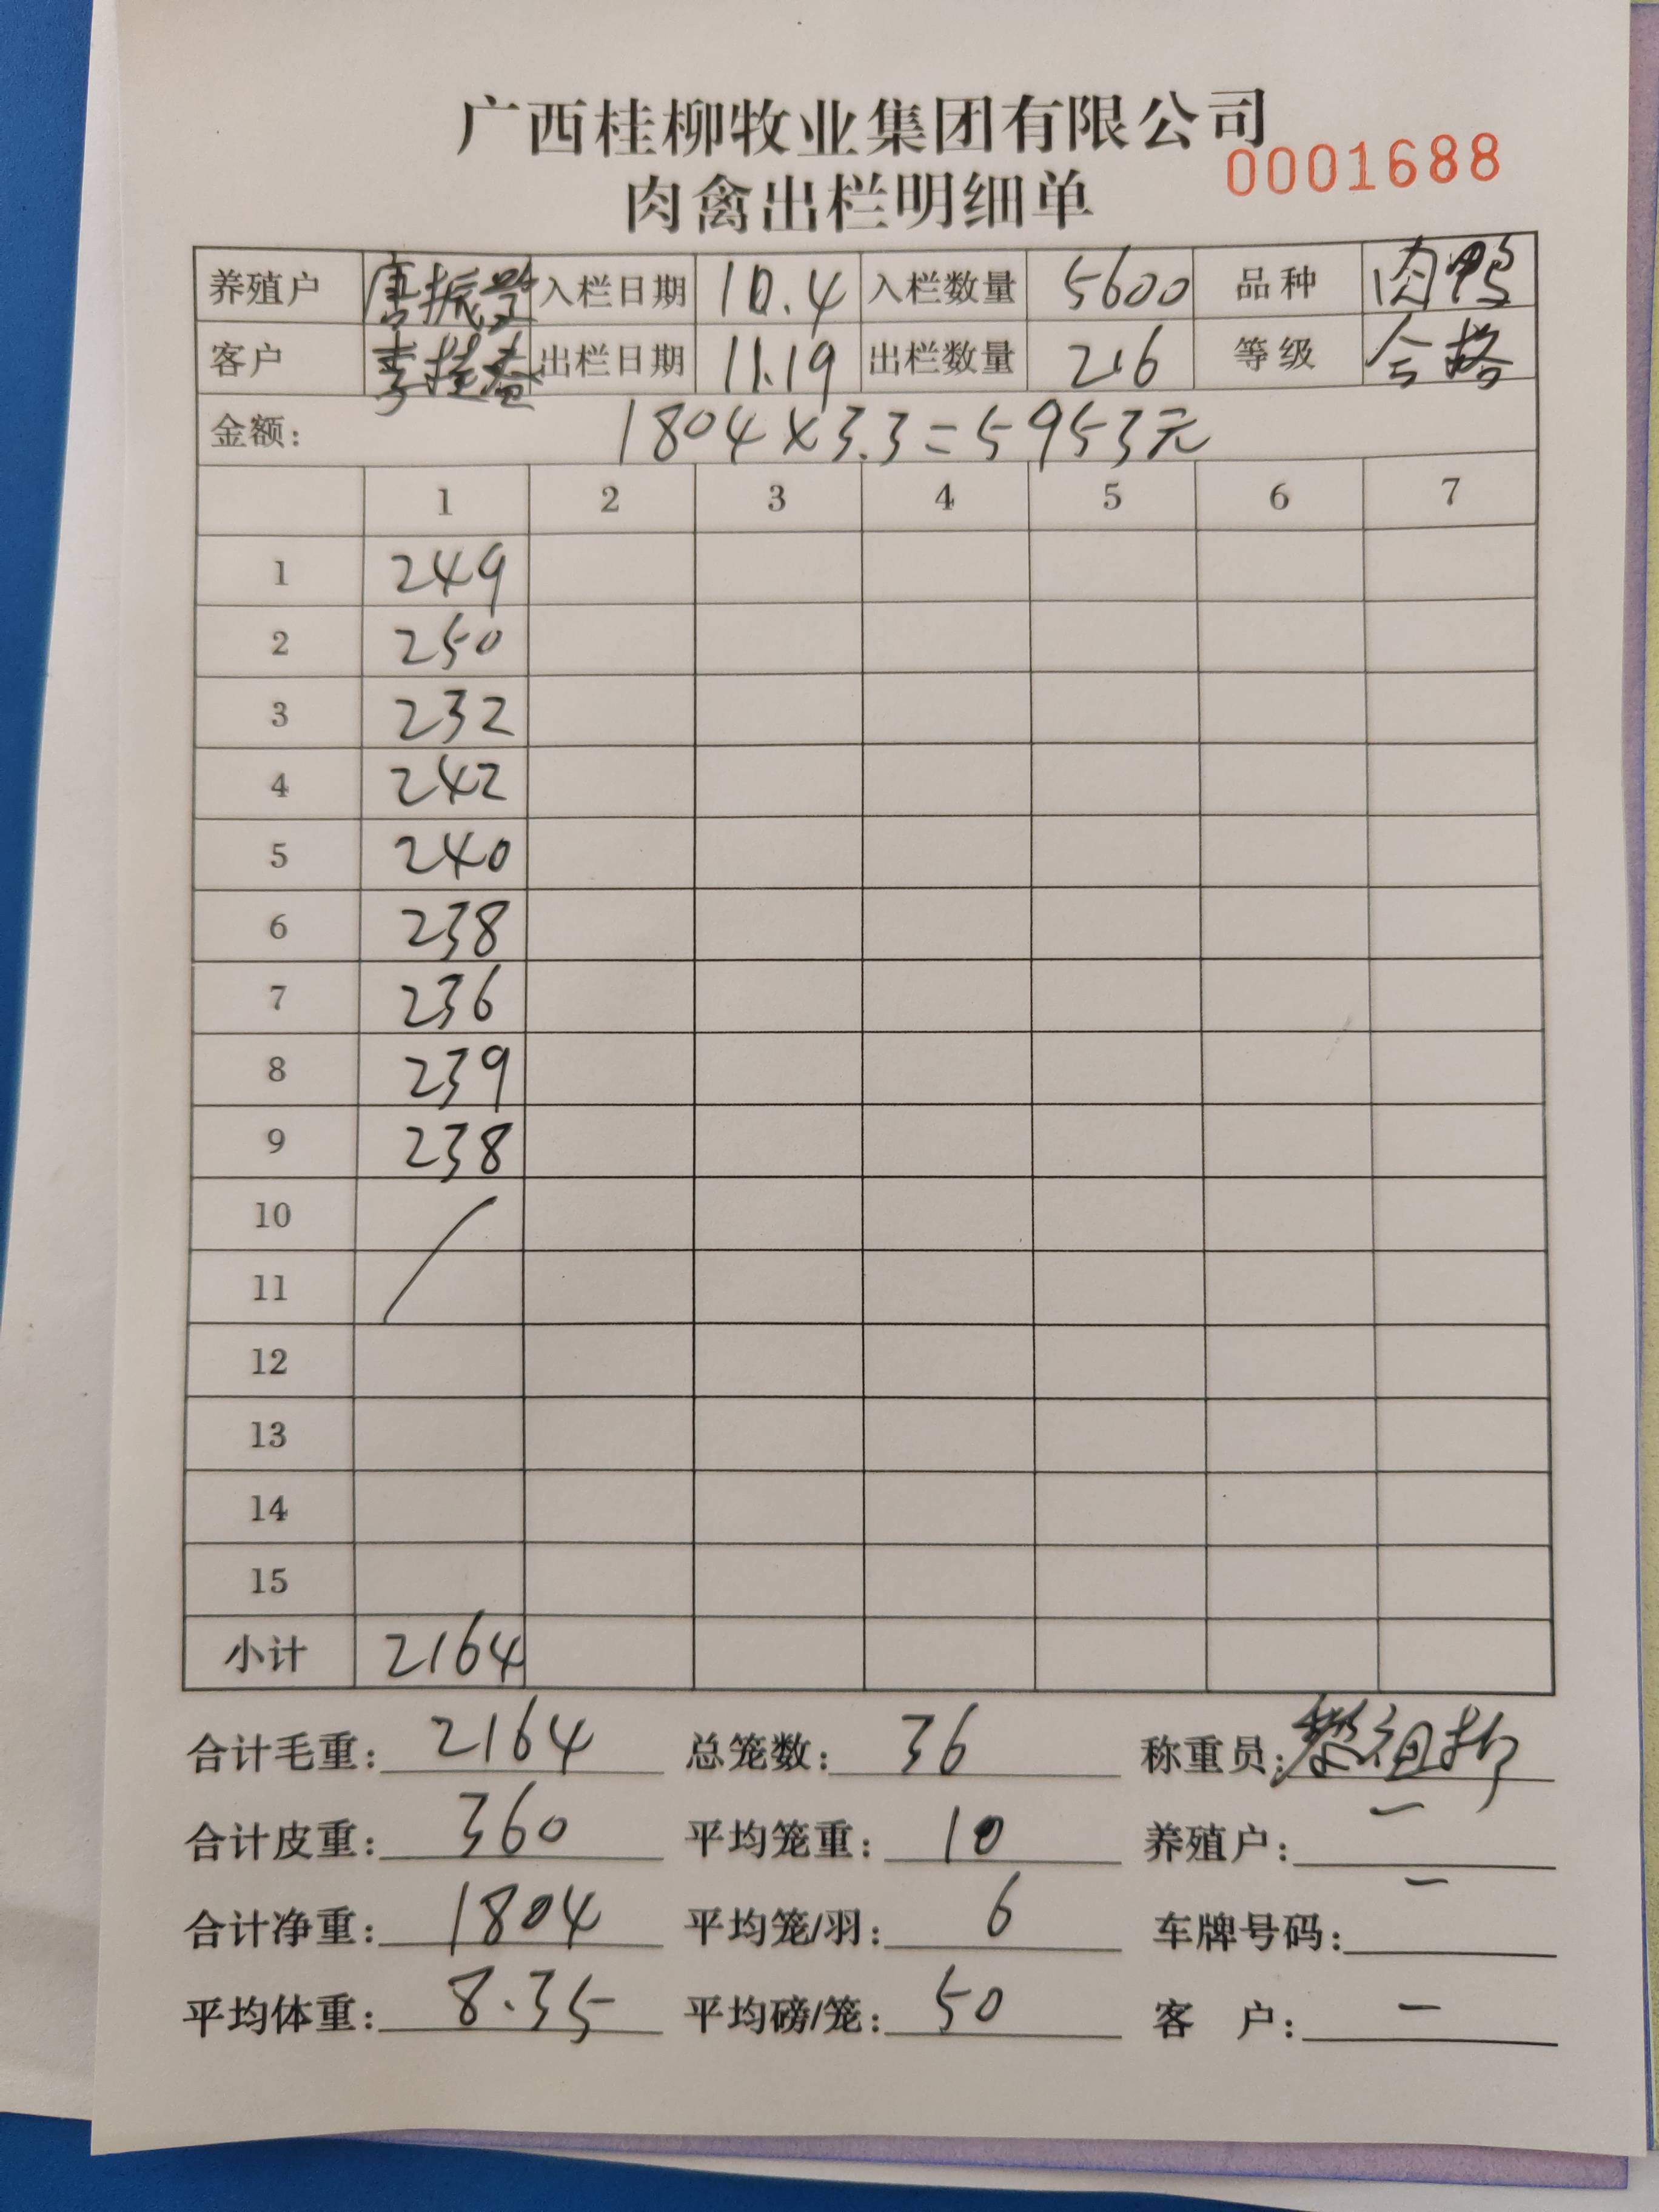 广西桂柳牧业集团有限公司
0001688
肉禽出栏明细单
养殖户 唐振 入栏日期 10.4 入栏数量 5600 品种 肉鸭
客户 李桂 出栏日期 11.19 出栏数量 216 等级 合格
金额: 1804×3.3=5953元
1 2 3 4 5 6 7
1 249
2 250
3 232
4 242
5 240
6 238
7 236
8 239
9 238
10
11
12
13
14
15
小计 2164
合计毛重: 2164 总笼数: 36 称重员:
合计皮重: 360 平均笼重: 10 养殖户: —
合计净重: 1804 平均笼/羽: 6 车牌号码: —
平均体重: 8.35 平均磅/笼: 50 客 户: —